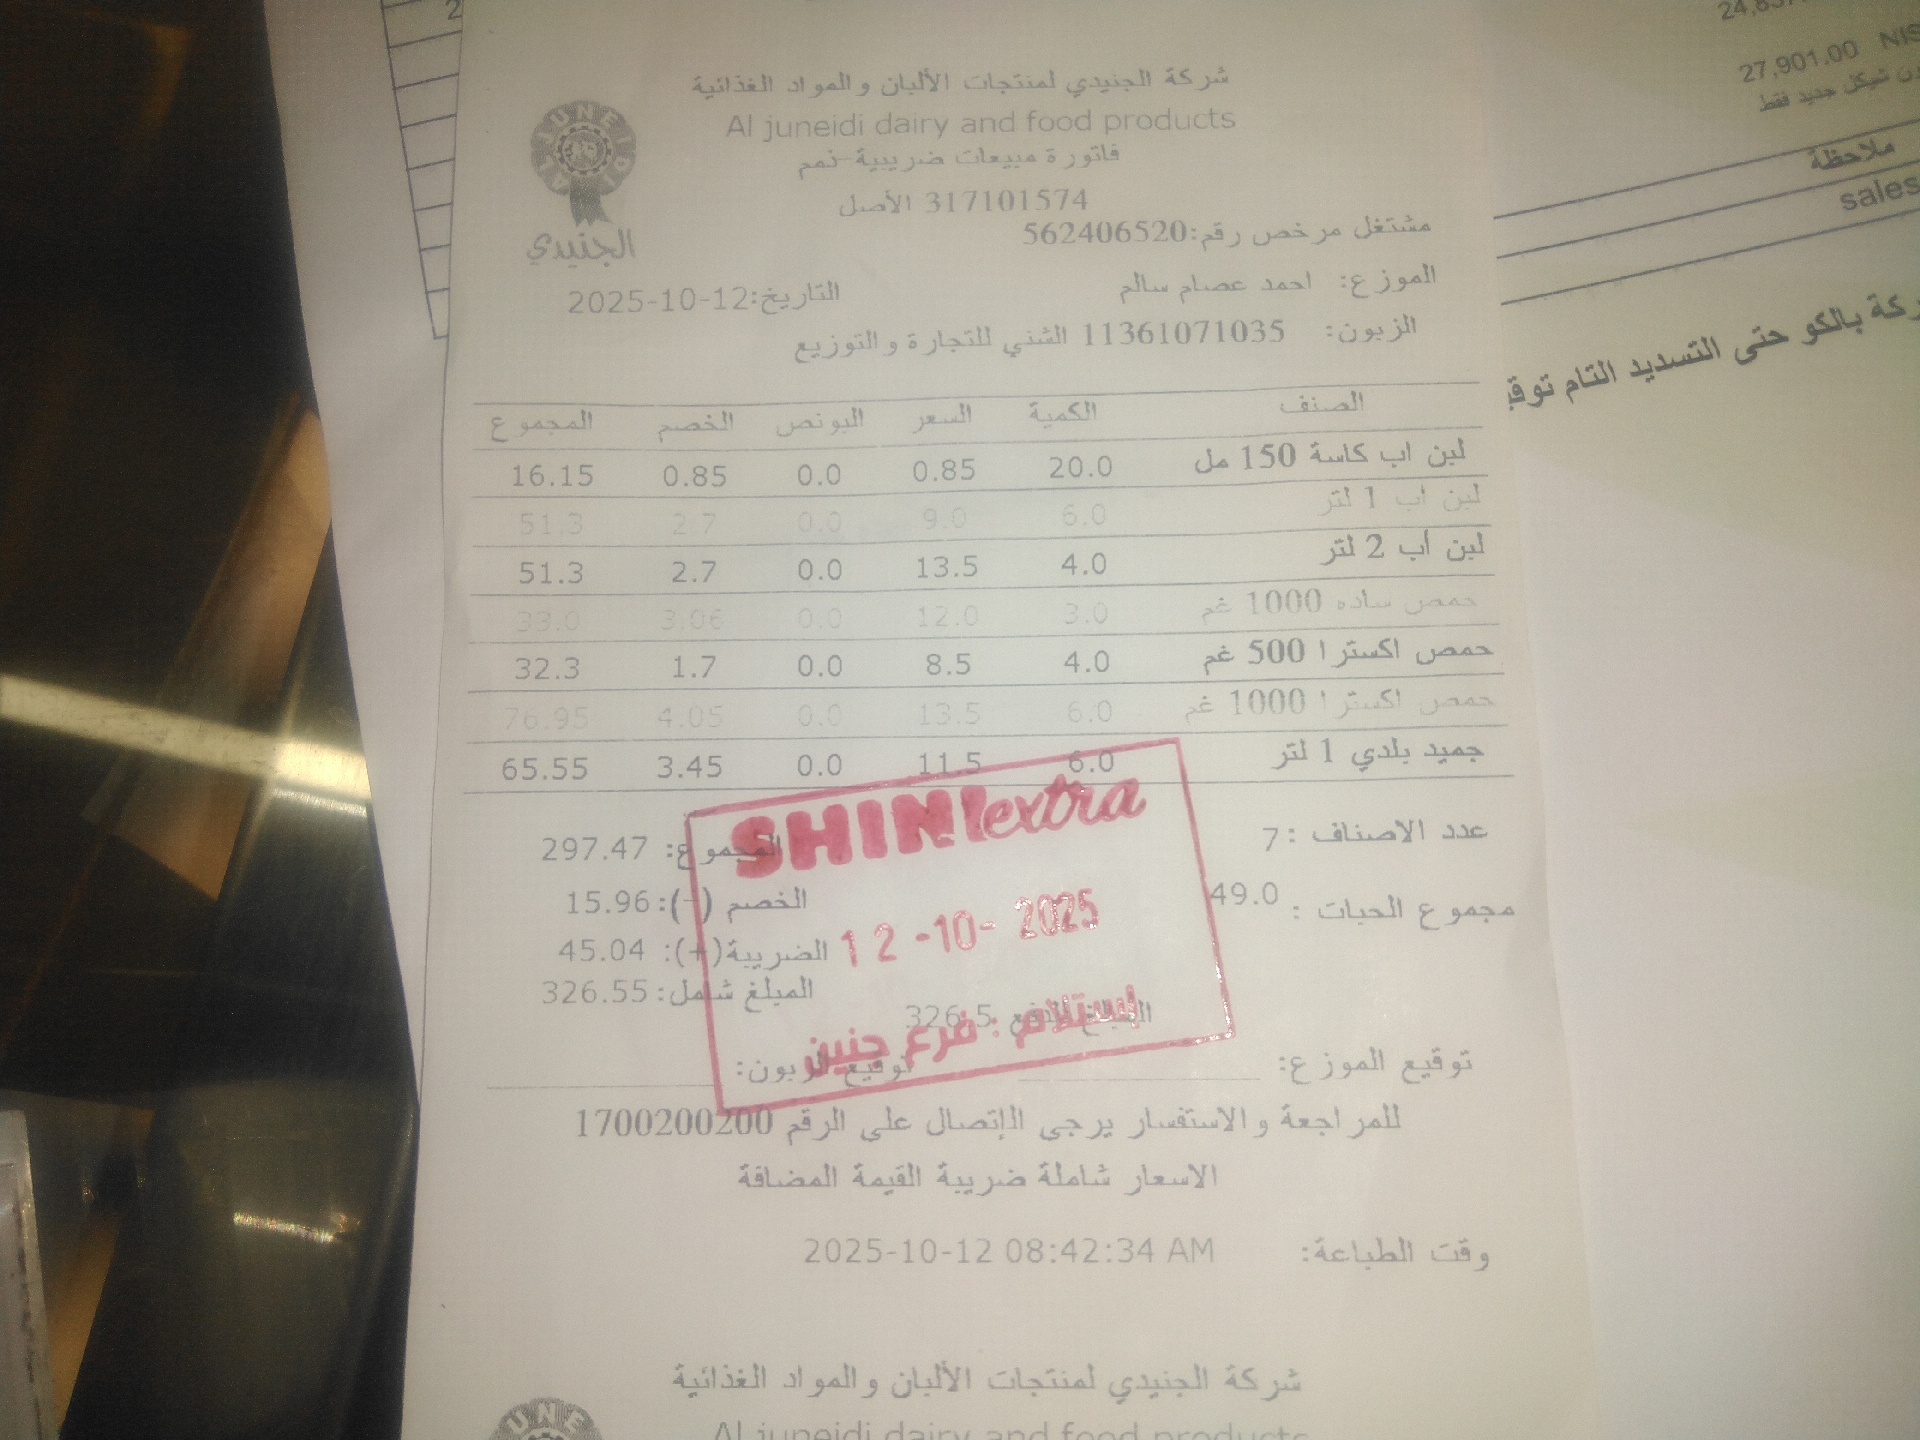 شركة الجنيدي لمنتجات الألبان والمواد الغذائية
Al juneidi dairy and food products
فاتورة مبيعات ضريبية-ذمم
317101574 الأصل
مشتغل مرخص رقم:562406520
الجنيدي
الموزع: احمد عصام سالم التاريخ:2025-10-12
الزبون: 11361071035 الشني للتجارة والتوزيع
الصنف الكمية السعر البونص الخصم المجموع
لبن اب كاسة 150 مل 20.0 0.85 0.0 0.85 16.15
لبن اب 1 لتر 6.0 9.0 0.0 2.7 51.3
لبن اب 2 لتر 4.0 13.5 0.0 2.7 51.3
حمص ساده 1000 غم 3.0 12.0 0.0 3.06 33.0
حمص اكسترا 500 غم 4.0 8.5 0.0 1.7 32.3
حمص اكسترا 1000 غم 6.0 13.5 0.0 4.05 76.95
جميد بلدي 1 لتر 6.0 11.5 0.0 3.45 65.55
عدد الاصناف : 7 المجموع: 297.47
مجموع الحبات : 49.0 الخصم (-): 15.96
الضريبة(+): 45.04
المبلغ شامل: 326.55
326.5
SHINI extra
12-10-2025
إستلام : فرع جنين
توقيع الموزع: توقيع الزبون:
للمراجعة والاستفسار يرجى الإتصال على الرقم 1700200200
الاسعار شاملة ضريبة القيمة المضافة
وقت الطباعة: 2025-10-12 08:42:34 AM
شركة الجنيدي لمنتجات الألبان والمواد الغذائية
Al juneidi dairy and food products
27,901.00 NIS
شيكل جديد فقط
ملاحظة
sales
بالكو حتى التسديد التام